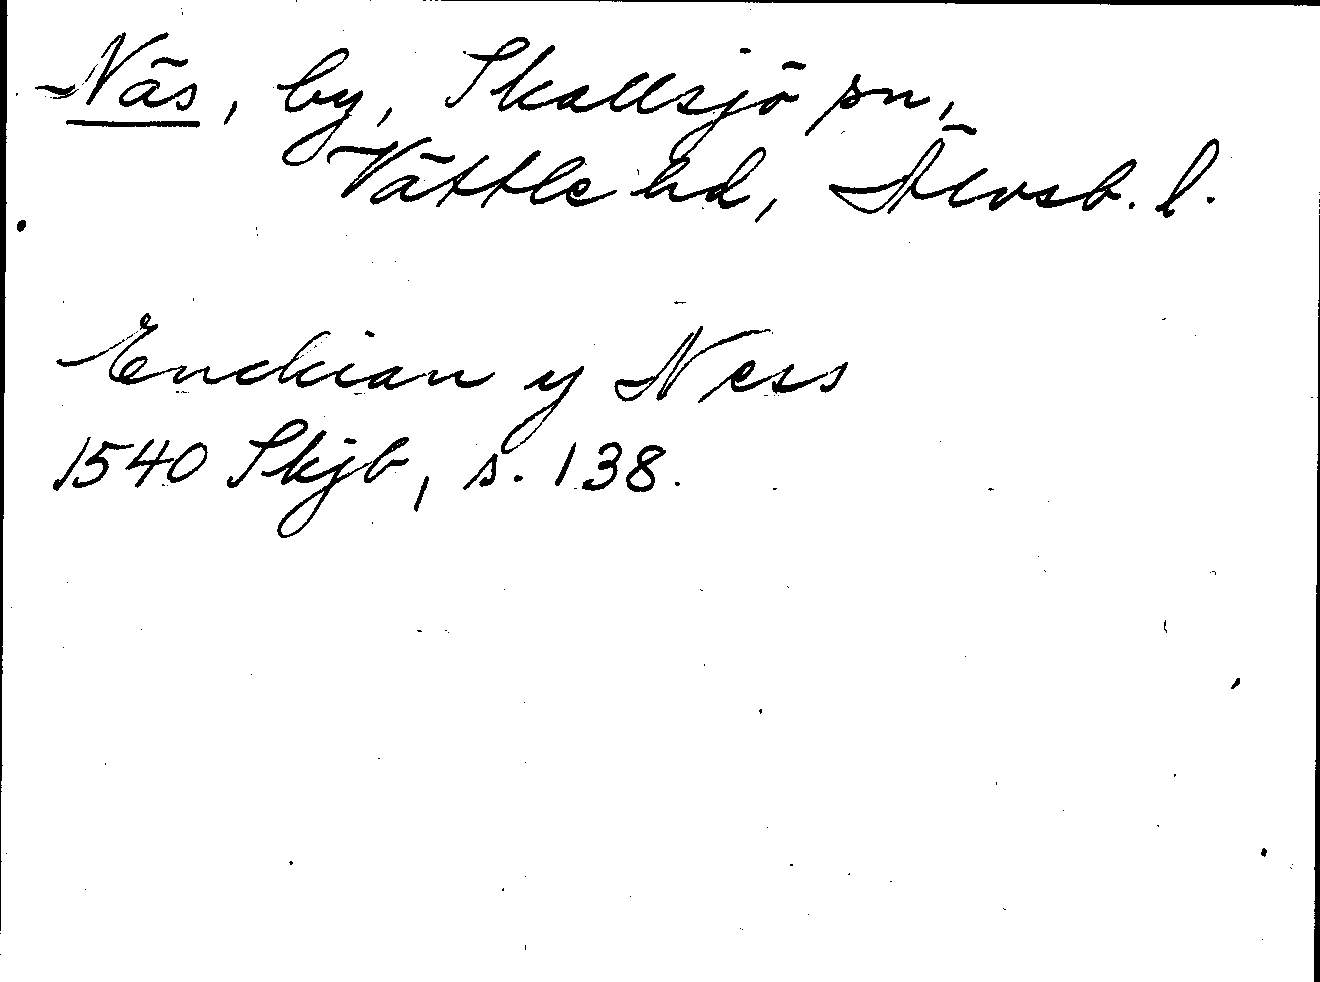 Näs, by, Skallsjö sn,
Vättle hd, Älvsb. l.
Enckian y Ness
1540 Skjb, s. 138.